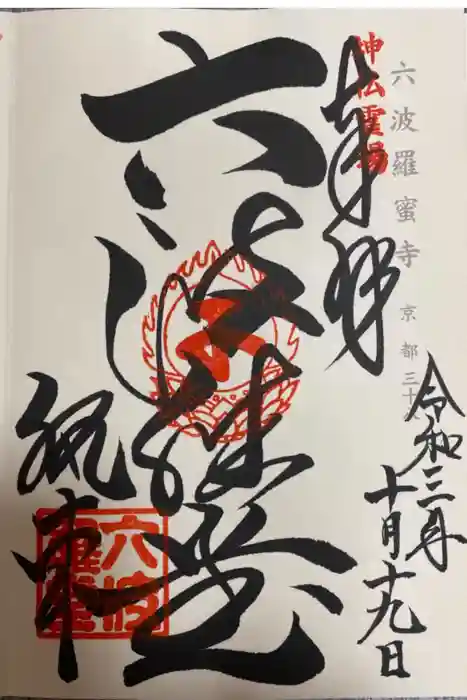 六波羅蜜寺 京都三十
神仏霊場
奉拝
令和三年
十月十九日
六波羅
執事
六波
羅蜜